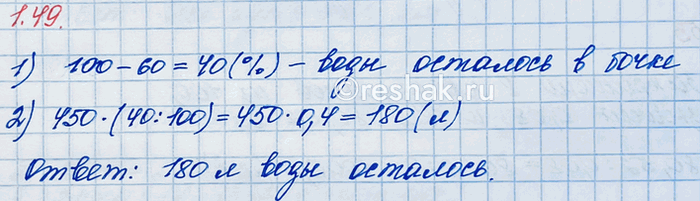 1.49.
1) 100-60=40(%) - воды осталось в бочке
©reshak.ru
2) 450·(40:100)=450·0,4=180(л)
Ответ: 180 л воды осталось.